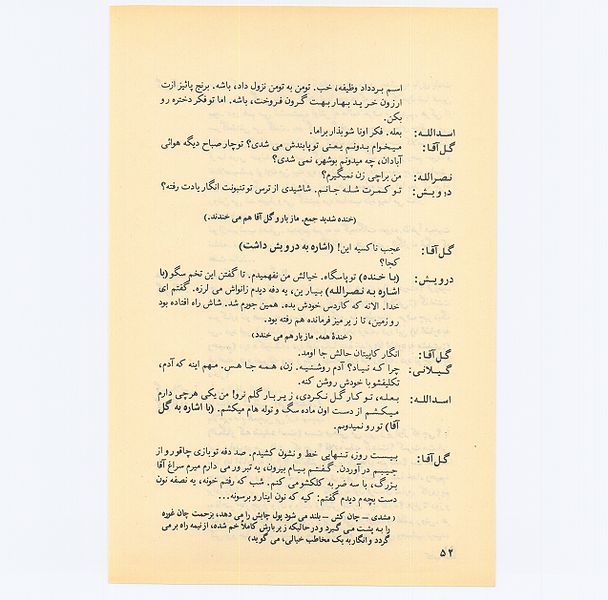 اسم بردداد وظیفه، خب. تومن به تومن نزول داد، باشه. برنج پائیز ازت
ارزون خرید بهار بهت گرون فروخت، باشه. اما تو فکر دختره رو
بکن.
اسدالله: بعله. فکر اونا شو بذار براما.
گل‌آقا: میخوام بدونم یعنی تو پابندش می شدی؟ تو چار صباح دیگه هوائی
آبادان، چه میدونم بوشهر، نمی شدی؟
نصرالله: من براچی زن نمیگیرم؟
درویش: تو کمرت شله جانم. شاشیدی از ترس تو تنبونت انگار یادت رفته؟
(خنده شدید جمع. مازیار و گل آقا هم می خندند.)
گل‌آقا: عجب ناکسیه این! (اشاره به درویش داشت)
کجا؟
درویش: (با خنده) تو پاسگاه. خیالش من نفهمیدم. تا گفتن این تخم سگو (با
اشاره به نصرالله) بیارین، یه دفه دیدم زانواش می لرزه. گفتم ای
خدا. الانه که کاردس خودش بده. همین جورم شد. شاش راه افتاده بود
رو زمین، تا زیر میز فرمانده هم رفته بود.
(خندهٔ همه. مازیار هم می خندد)
گل‌آقا: انگار کاپیتان حالش جا اومد.
گیلانی: چرا که نیاد؟ آدم روشنیه. زن، همه جا هس. مهم اینه که آدم،
تکلیفشو با خودش روشن کنه.
اسدالله: بعله، تو کار گل نکردی، زیر بار گلم نرو! من یکی هرچی دارم
میکشم از دست اون ماده سگ و توله هام میکشم. (با اشاره به گل
آقا) تو رو نمیدونم.
گل‌آقا: بیست روز، تنهایی خط و نشون کشیدم. صد دفه تو بازی چاقورو از
جیبم در آوردن. گفتم بیام بیرون، یه تبر ور می دارم میرم سراغ آقا
بزرگ، با سه ضربه کلکشو می کنم. شب که رفتم خونه، یه نصفه نون
دست بچه‌م دیدم گفتم: کیه که نون ایتار و برسونه...
(مشدی — جان کش — بلند می شود پول چایش را می دهد، بزحمت چان غوره
را به پشت می گیرد و در حالیکه زیر بارش کاملاً خم شده، از نیمه راه بر می
گردد و انگار به یک مخاطب خیالی، می گوید)
۵۲